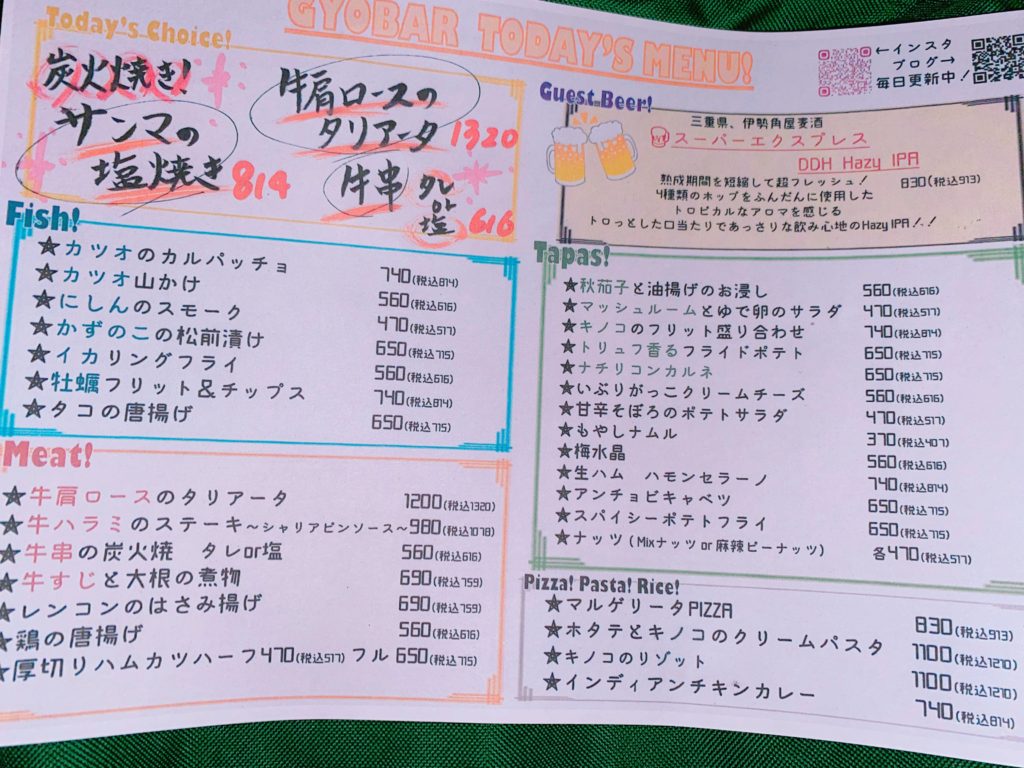 GYOBAR TODAY'S MENU!
Today's Choice!
炭火焼き!
サンマの
塩焼き 814
牛肩ロースの
タリアータ 1320
牛串 タレ
or
塩 616
←インスタ
ブログ→
毎日更新中!
Guest Beer!
三重県、伊勢角屋麦酒
スーパーエクスプレス
DDH Hazy IPA
830(税込913)
熟成期間を短縮して超フレッシュ!
4種類のホップをふんだんに使用した
トロピカルなアロマを感じる
トロっとした口当たりであっさりな飲み心地のHazy IPA!!
Fish!
★カツオのカルパッチョ 740(税込814)
★カツオ山かけ 560(税込616)
★にしんのスモーク 470(税込517)
★かずのこの松前漬け 650(税込715)
★イカリングフライ 560(税込616)
★牡蠣フリット&チップス 740(税込814)
★タコの唐揚げ 650(税込715)
Meat!
★牛肩ロースのタリアータ 1200(税込1320)
★牛ハラミのステーキ~シャリアピンソース~980(税込1078)
★牛串の炭火焼 タレor塩 560(税込616)
★牛すじと大根の煮物 690(税込759)
★レンコンのはさみ揚げ 690(税込759)
★鶏の唐揚げ 560(税込616)
★厚切りハムカツハーフ470(税込517) フル650(税込715)
Tapas!
★秋茄子と油揚げのお浸し 560(税込616)
★マッシュルームとゆで卵のサラダ 470(税込517)
★キノコのフリット盛り合わせ 740(税込814)
★トリュフ香るフライドポテト 650(税込715)
★ナチリコンカルネ 650(税込715)
★いぶりがっこクリームチーズ 560(税込616)
★甘辛そぼろのポテトサラダ 470(税込517)
★もやしナムル 370(税込407)
★梅水晶 560(税込616)
★生ハム ハモンセラーノ 740(税込814)
★アンチョビキャベツ 650(税込715)
★スパイシーポテトフライ 650(税込715)
★ナッツ(Mixナッツor麻辣ピーナッツ) 各470(税込517)
Pizza! Pasta! Rice!
★マルゲリータPIZZA 830(税込913)
★ホタテとキノコのクリームパスタ 1100(税込1210)
★キノコのリゾット 1100(税込1210)
★インディアンチキンカレー 740(税込814)